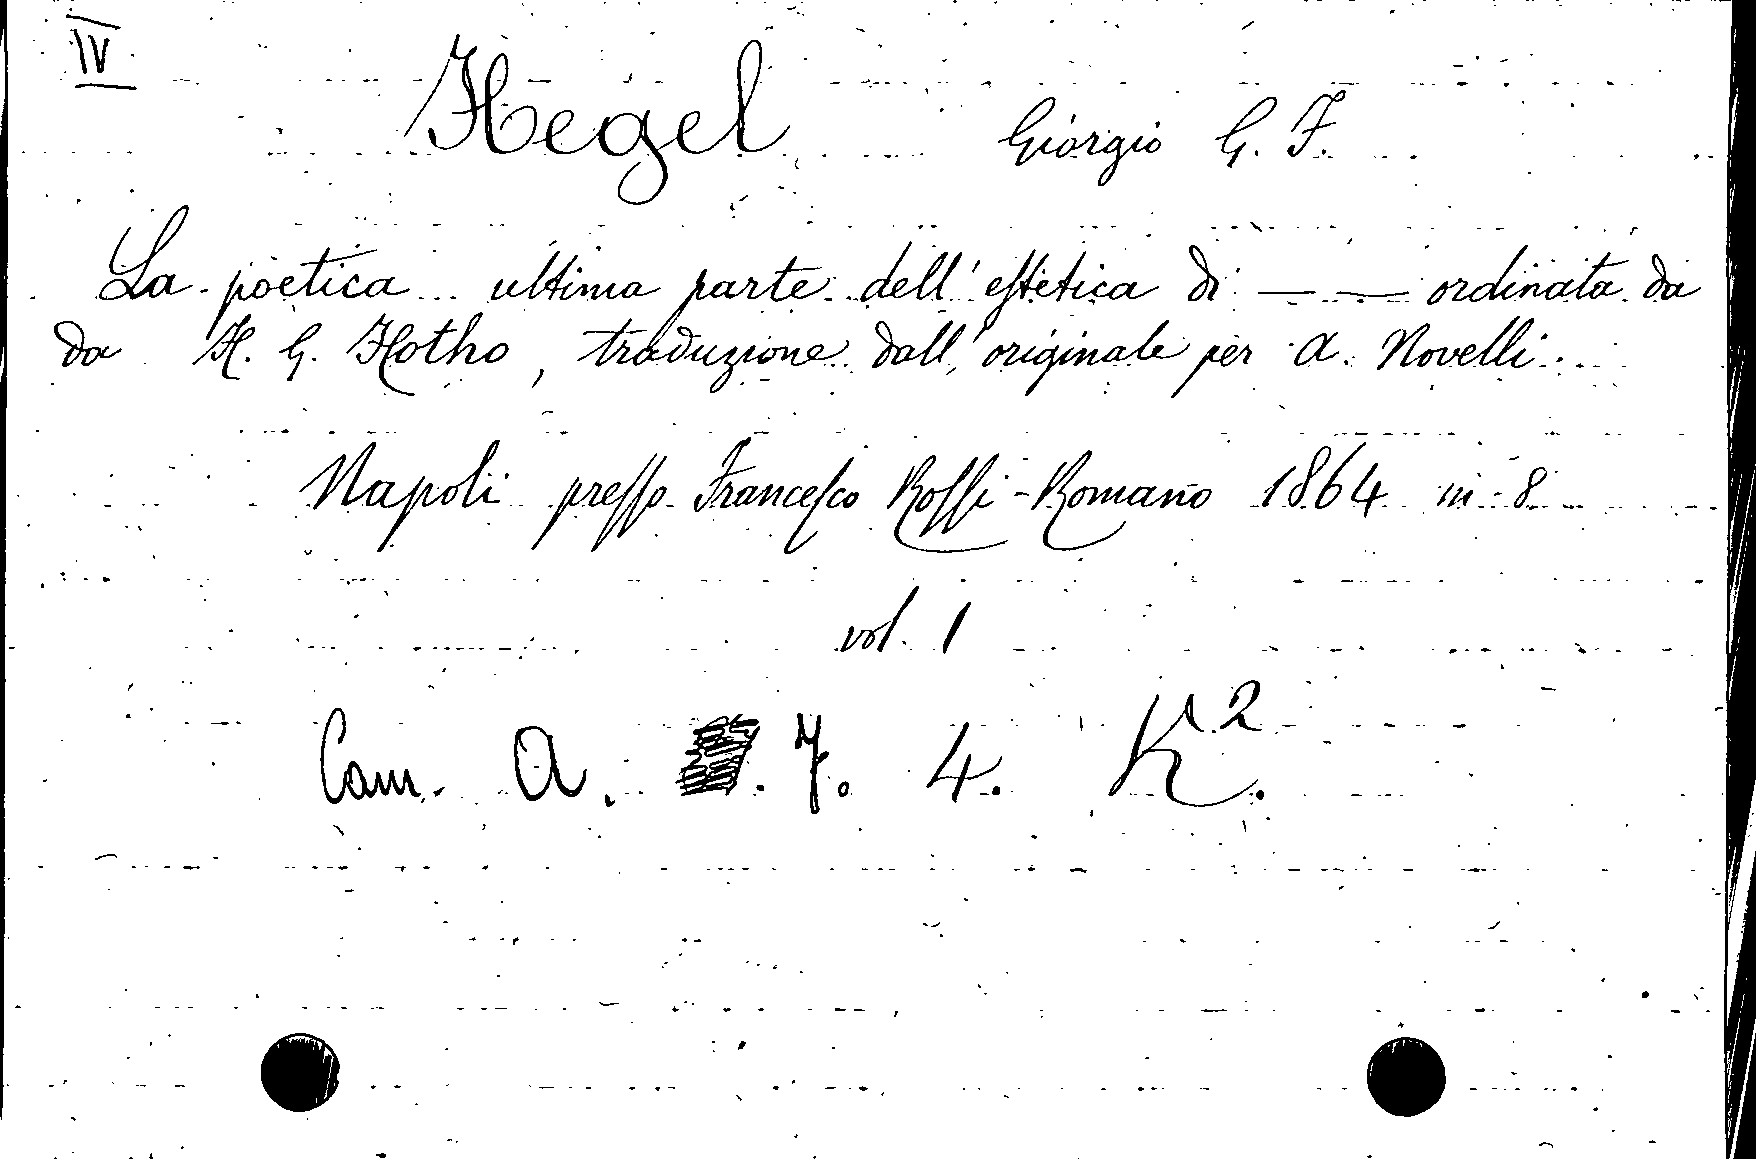 IV
Hegel Giorgio G. F.
La poetica ultima parte dell'estetica di — — ordinata da
da H. G. Hotho, traduzione dall'originale per A. Novelli.
Napoli presso Francesco Rossi-Romano 1864 in-8
vol. 1
Cam. A. . 7. 4. K².